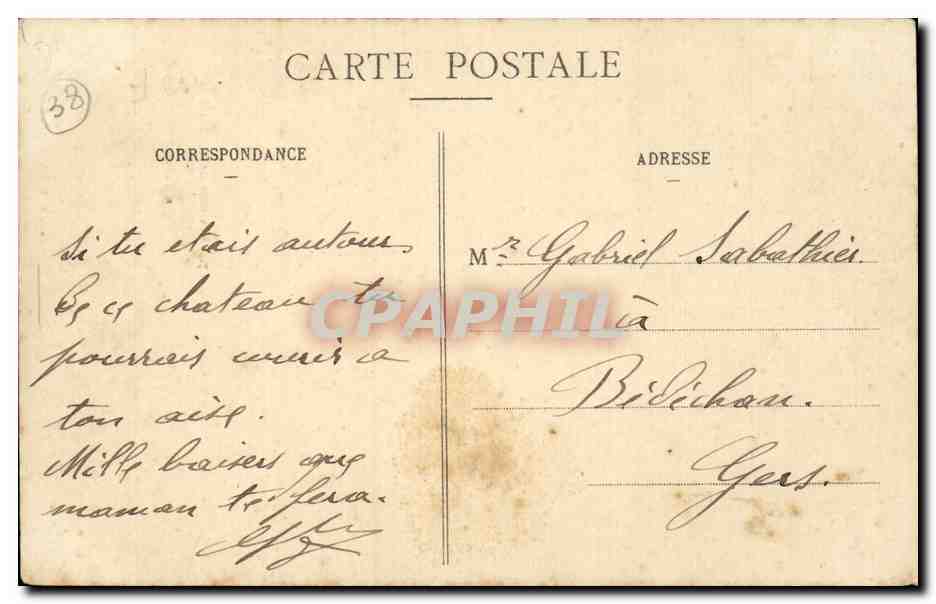 CARTE POSTALE
38
CORRESPONDANCE
Si tu etais autour
De ce chateau tu
pourrais courir a
ton aise.
Mille baisers que
maman te fera.
ADRESSE
Mr Gabriel Sabathier
à
Bédéchan.
Gers.
CPAPHIL